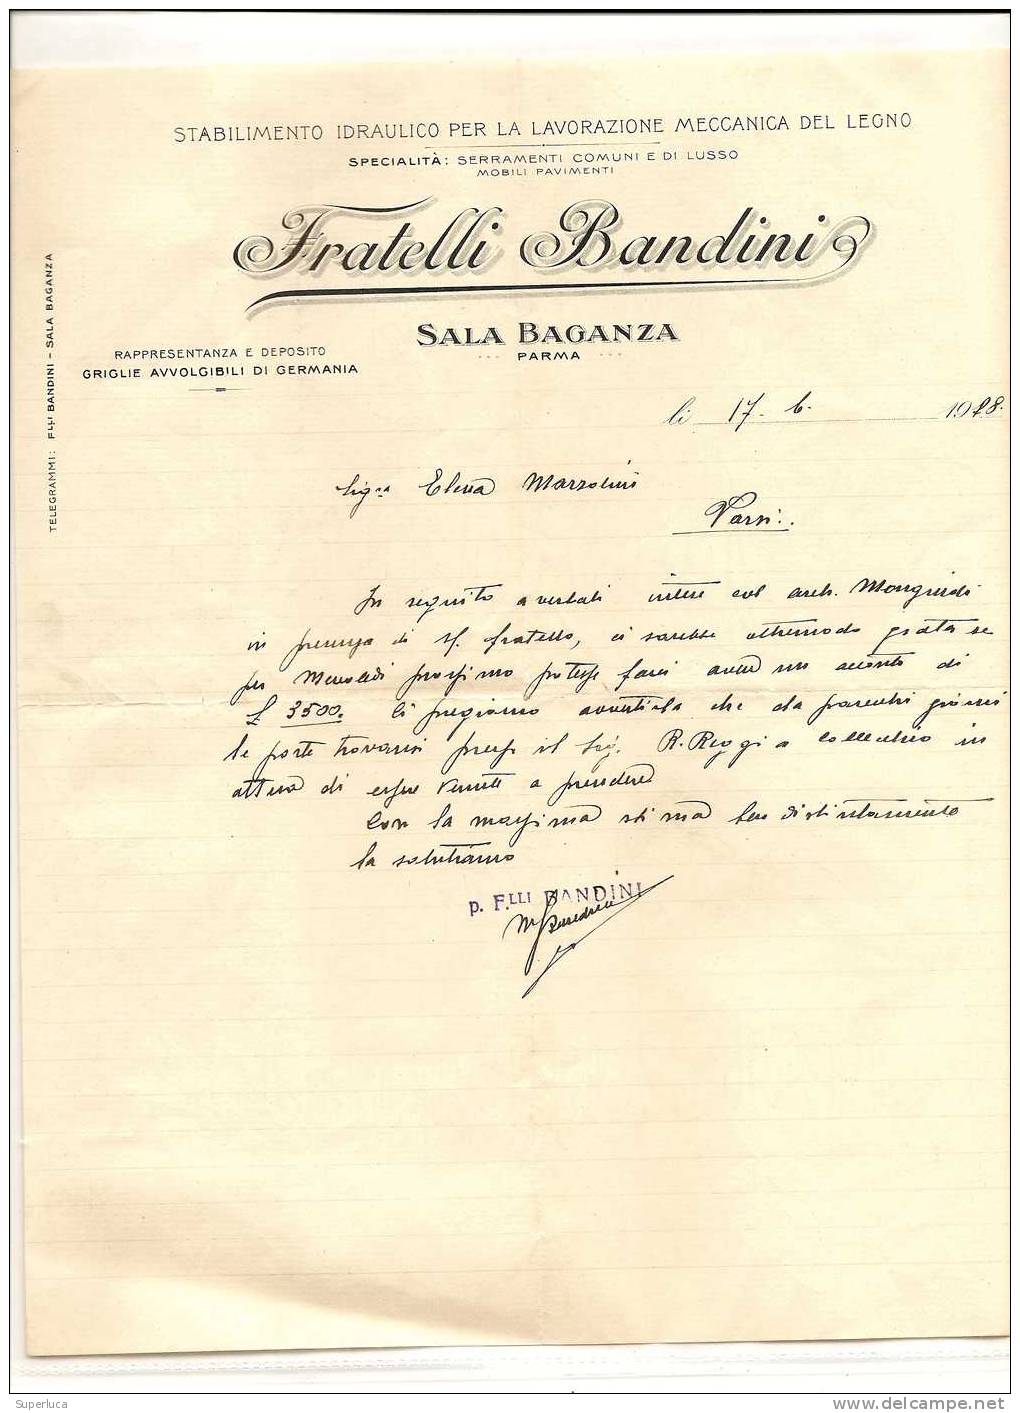 STABILIMENTO IDRAULICO PER LA LAVORAZIONE MECCANICA DEL LEGNO
SPECIALITÀ: SERRAMENTI COMUNI E DI LUSSO
MOBILI PAVIMENTI
Fratelli Bandini
SALA BAGANZA
PARMA
RAPPRESENTANZA E DEPOSITO
GRIGLIE AVVOLGIBILI DI GERMANIA
TELEGRAMMI: F.LLI BANDINI - SALA BAGANZA
li 17-6. 1928.
Sig.ra Elena Marzolini
Varsi.
In seguito a verbali intese col arch. Mongiardi
in presenza di fratello, ci sarebbe oltremodo grata se
per Mercoledì prossimo potesse farci avere un acconto di
£ 3500. Ci pregiamo avvertirla che da parecchi giorni
le porte trovansi presso il Sig. R. Reggi a Collecchio in
attesa di essere venute a prendere
Con la massima stima ben distintamente
la salutiamo
p. F.LLI BANDINI
Bandini
Superluca
www.delcampe.net